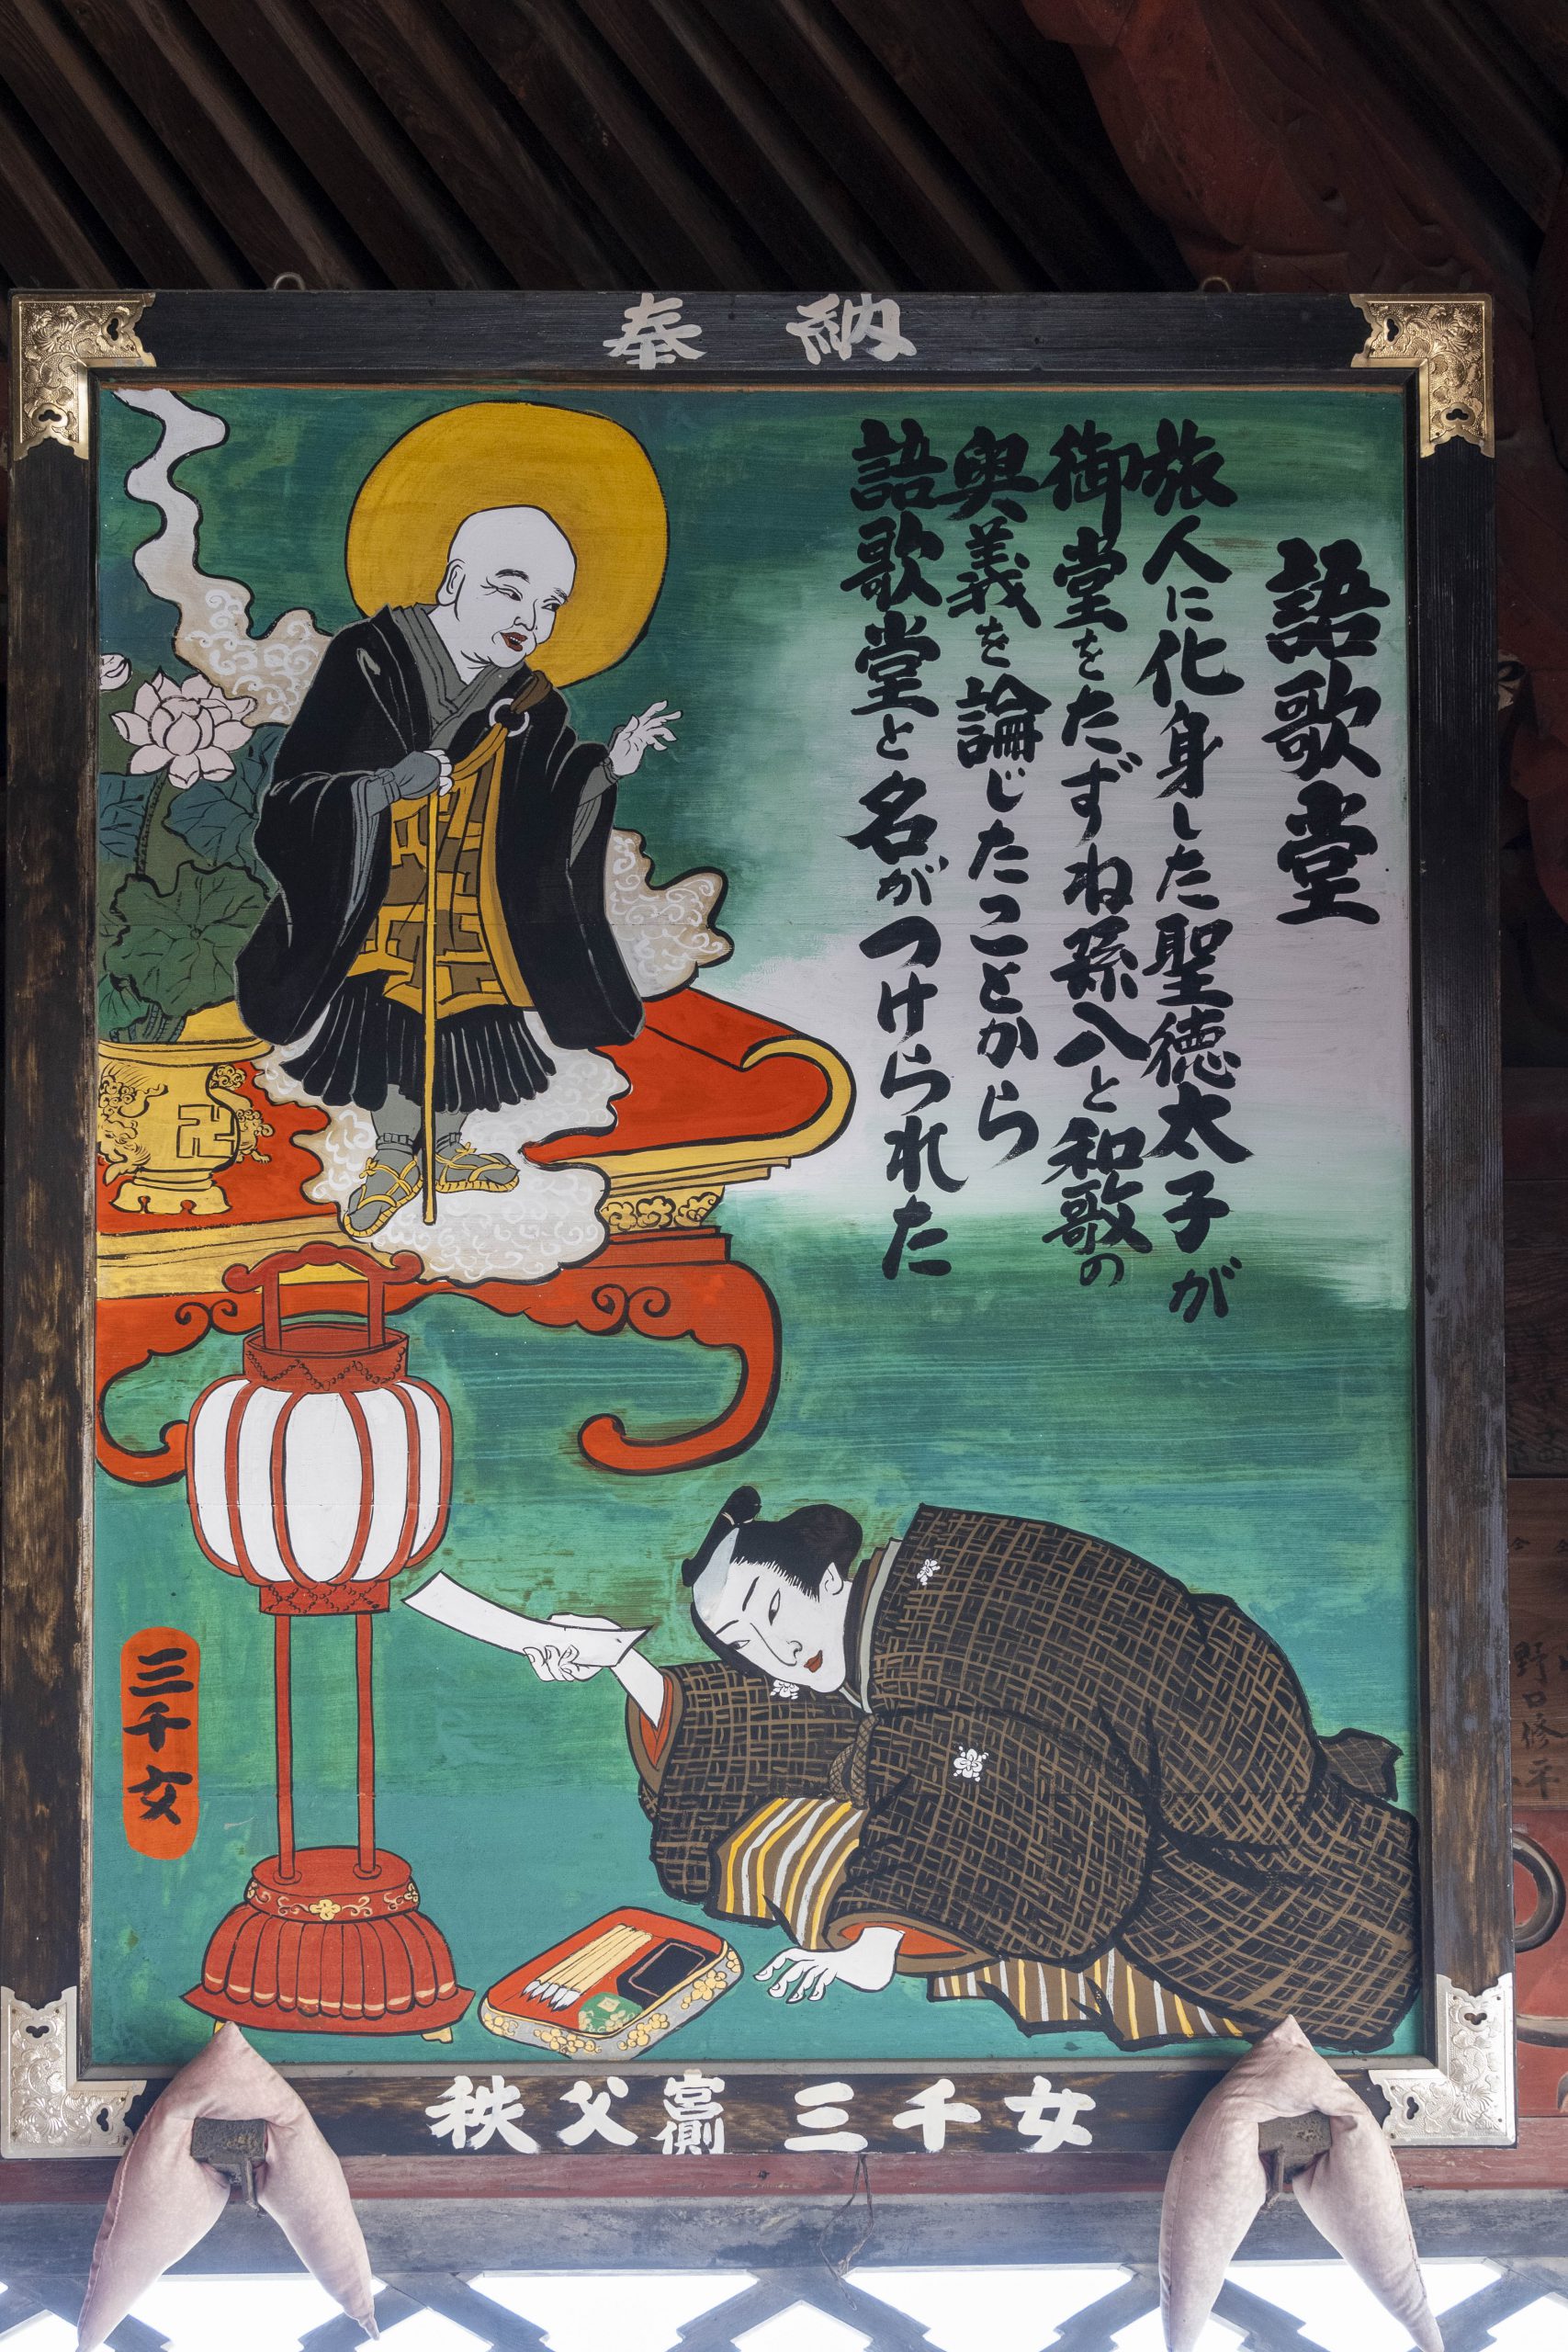 奉納
語歌堂
旅人に化身した聖徳太子が
御堂をたずね孫八と和歌の
奥義を論じたことから
語歌堂と名がつけられた
三千女
秩父宮側 三千女
野口修平